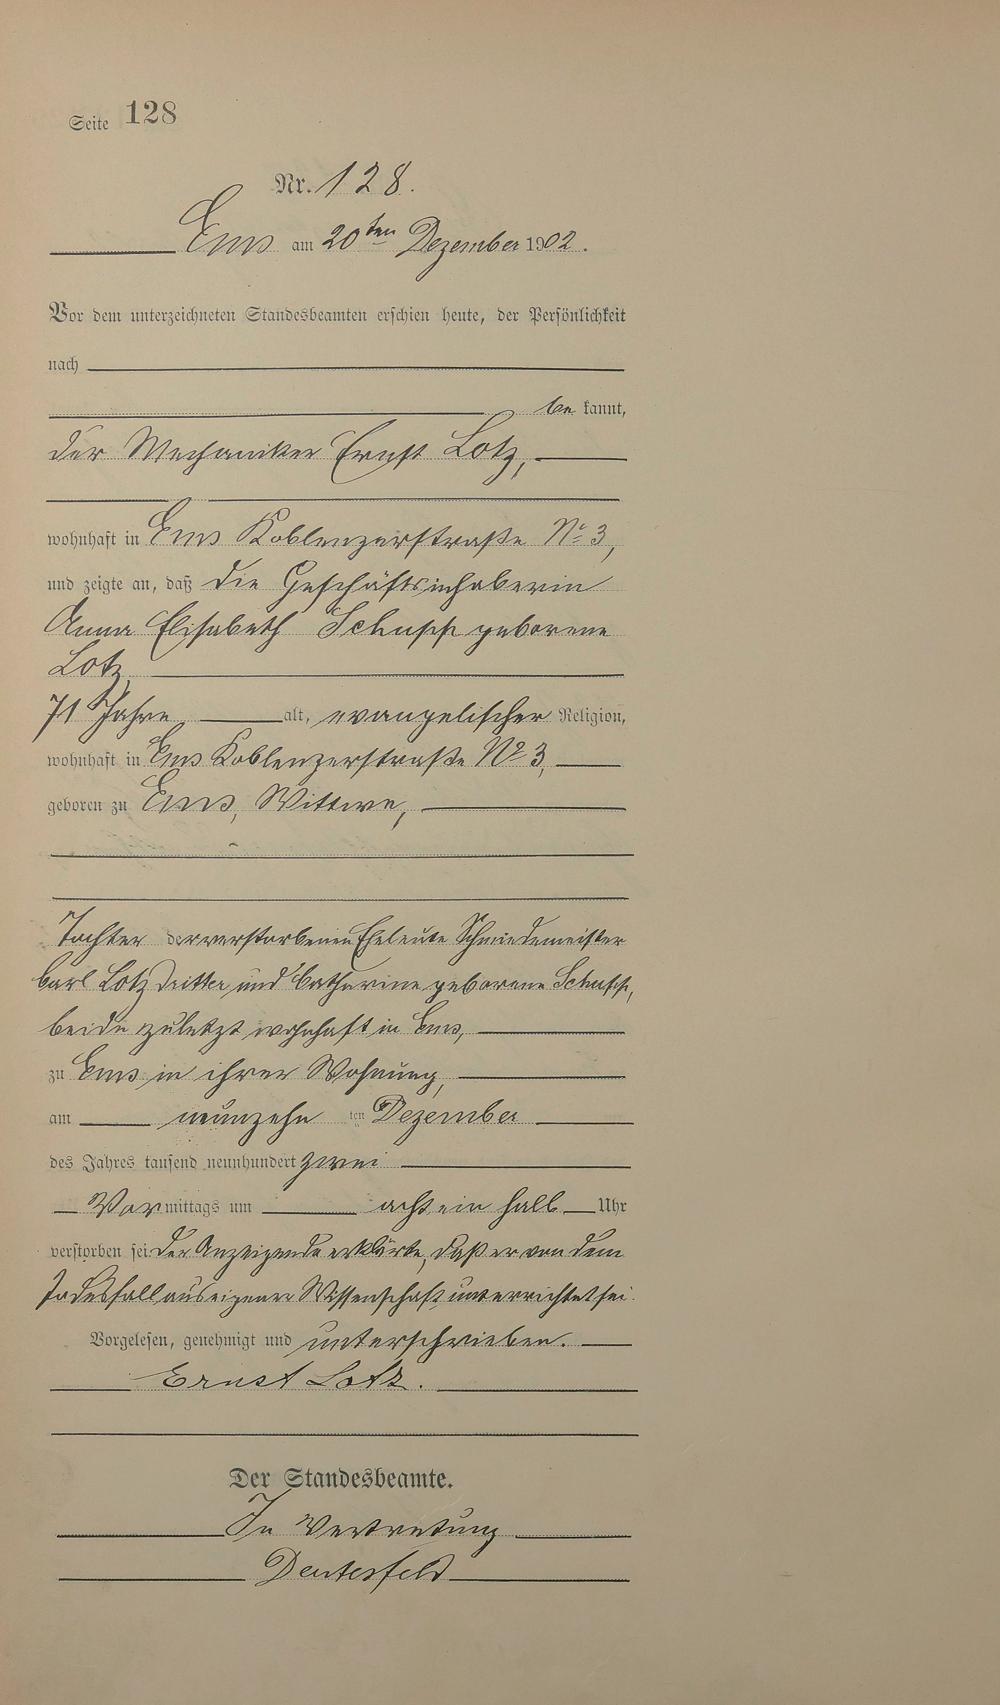 Seite 128
Nr. 128.
Ems am 20ten Dezember 1902.
Vor dem unterzeichneten Standesbeamten erschien heute, der Persönlichkeit
nach
be kannt,
der Mechaniker Ernst Lotz,
wohnhaft in Ems Koblenzerstraße No 3,
und zeigte an, daß die Geschäftsinhaberin
Anna Elisabeth Schupp geborene
Lotz,
71 Jahre alt, evangelischer Religion,
wohnhaft in Ems Koblenzerstraße No 3,
geboren zu Ems, Wittwe,
Tochter der verstorbenen Eheleute Schmiedemeister
Carl Lotz dritter und Catharine geborene Schupp,
beide zuletzt wohnhaft in Ems,
zu Ems in ihrer Wohnung,
am neunzehn ten Dezember
des Jahres tausend neunhundert zwei
Vormittags um acht ein halb Uhr
verstorben sei. Der Anzeigende erklärte, daß er von dem
Todesfall aus eigener Wissenschaft unterrichtet sei.
Vorgelesen, genehmigt und unterschrieben.
Ernst Lotz.
Der Standesbeamte.
In Vertretung